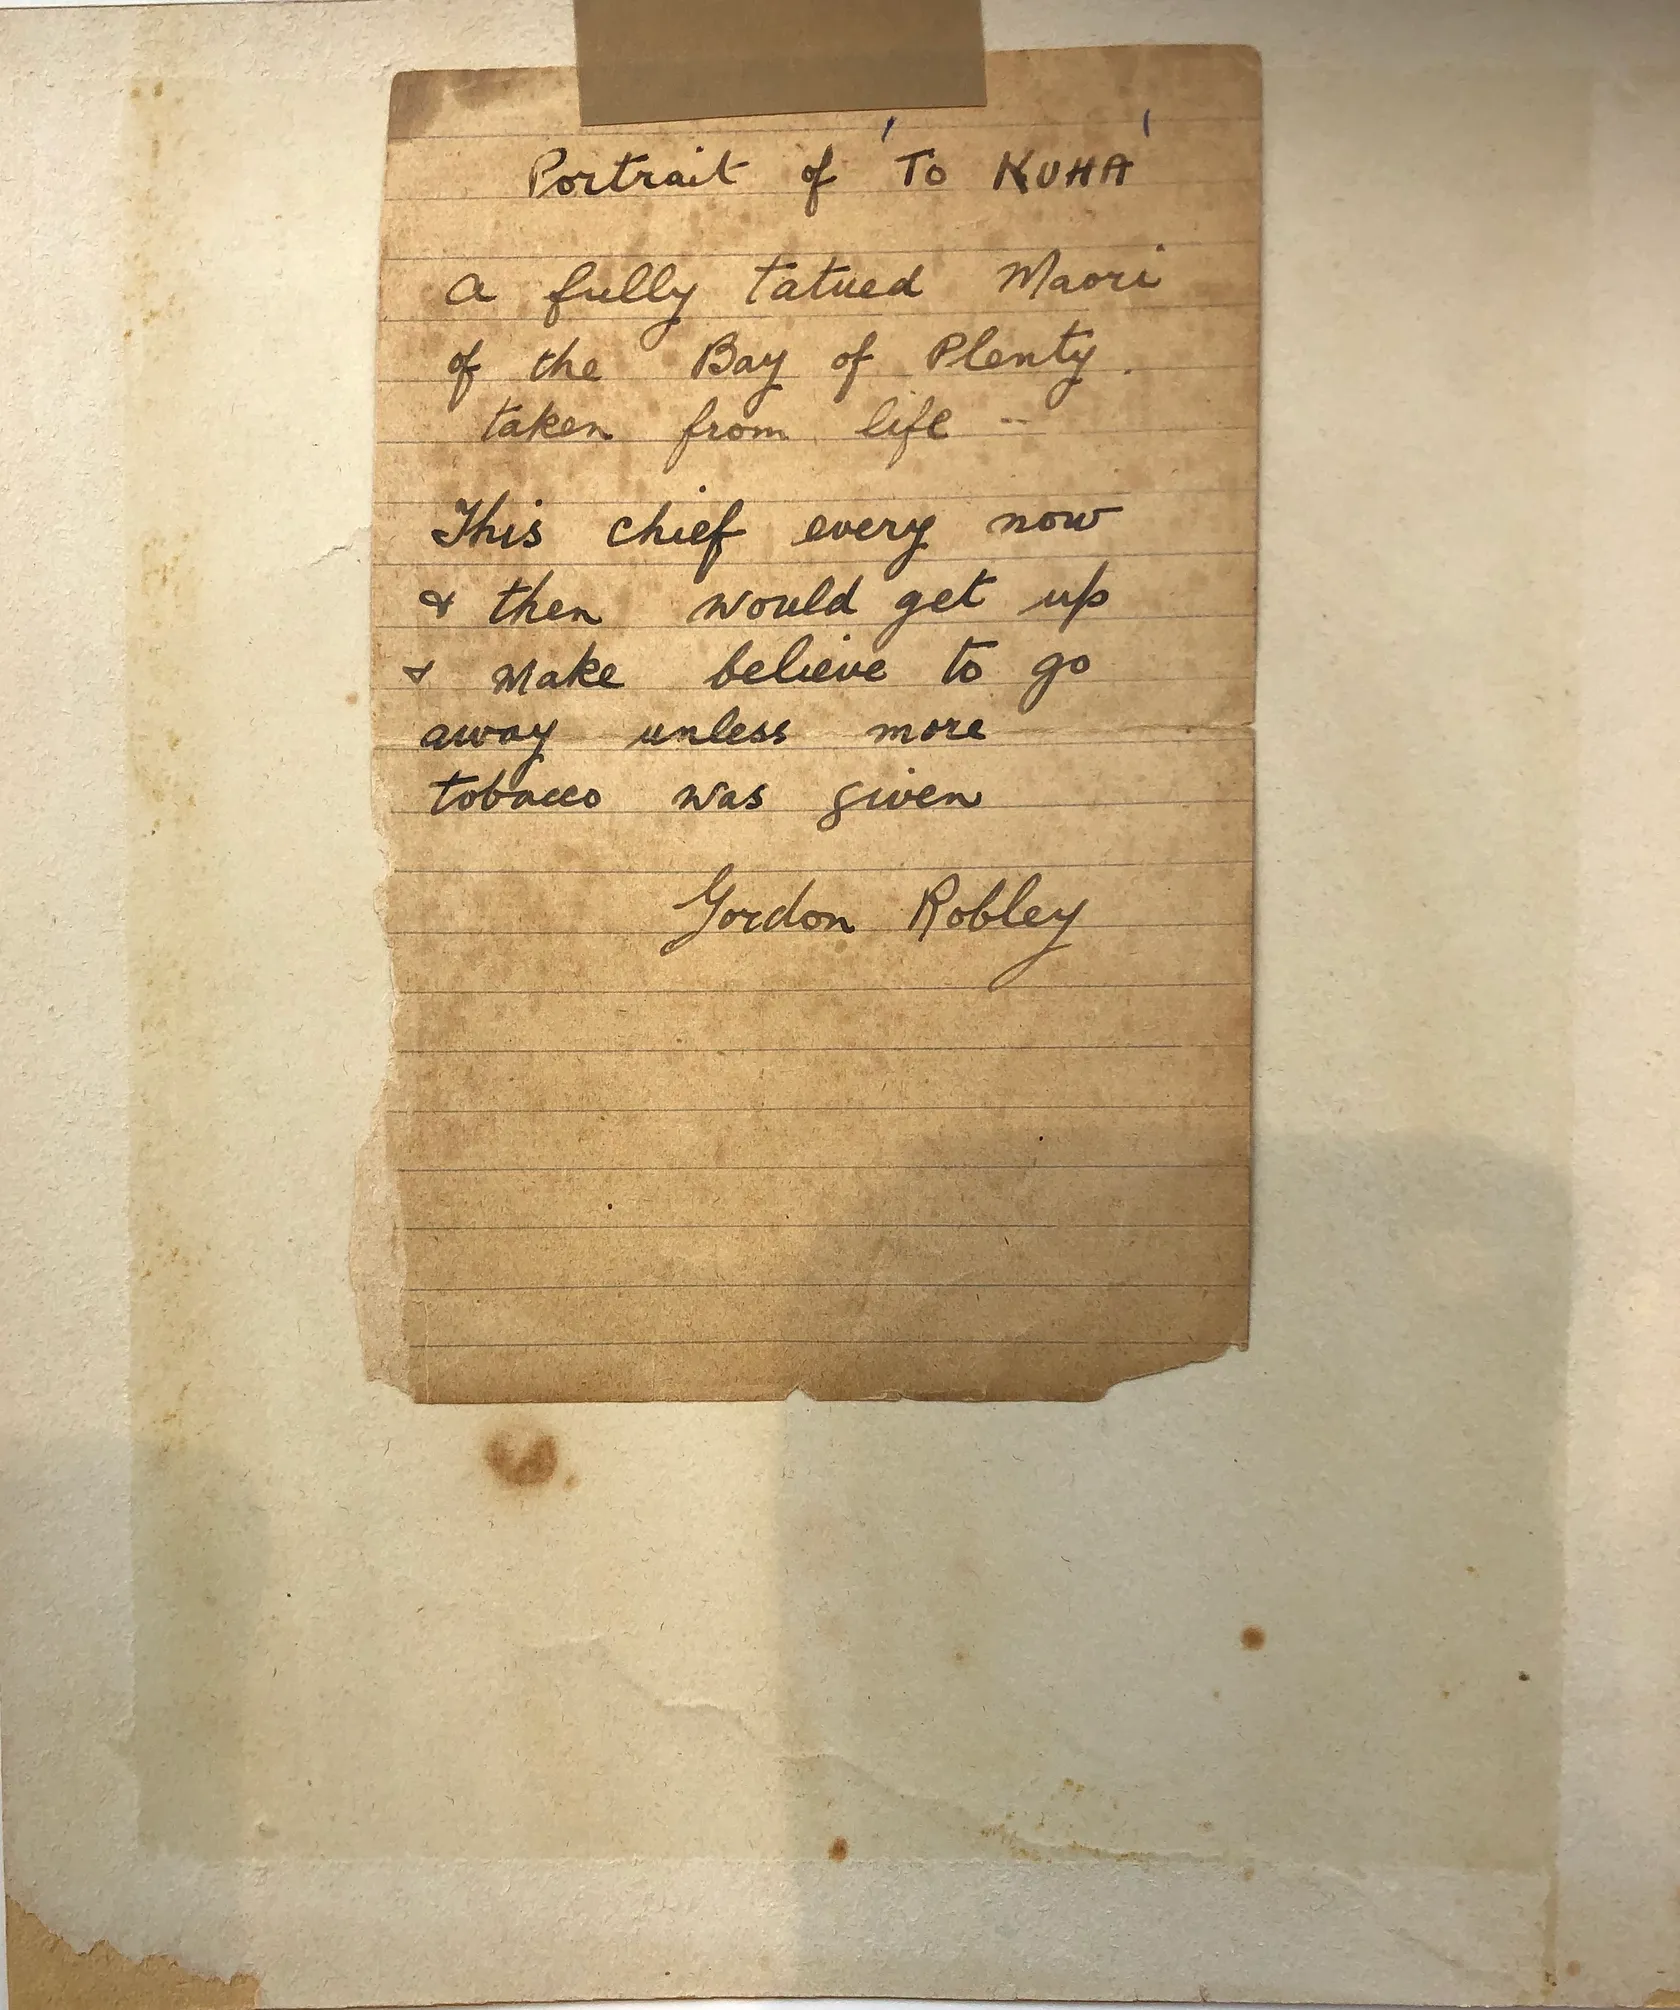 Portrait of 'To KUHA'
a fully tatued Maori
of the Bay of Plenty.
taken from life --
This chief every now
& then would get up
& make believe to go
away unless more
tobacco was given
Gordon Robley